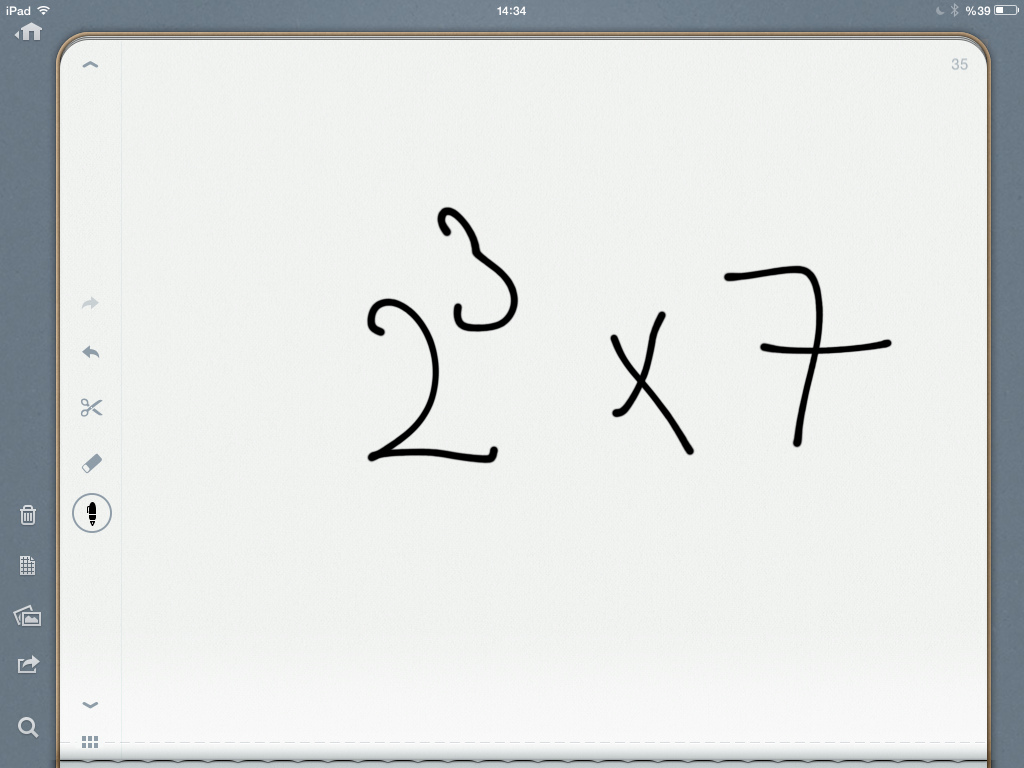 iPad 14:34 %39
35
2³ x 7